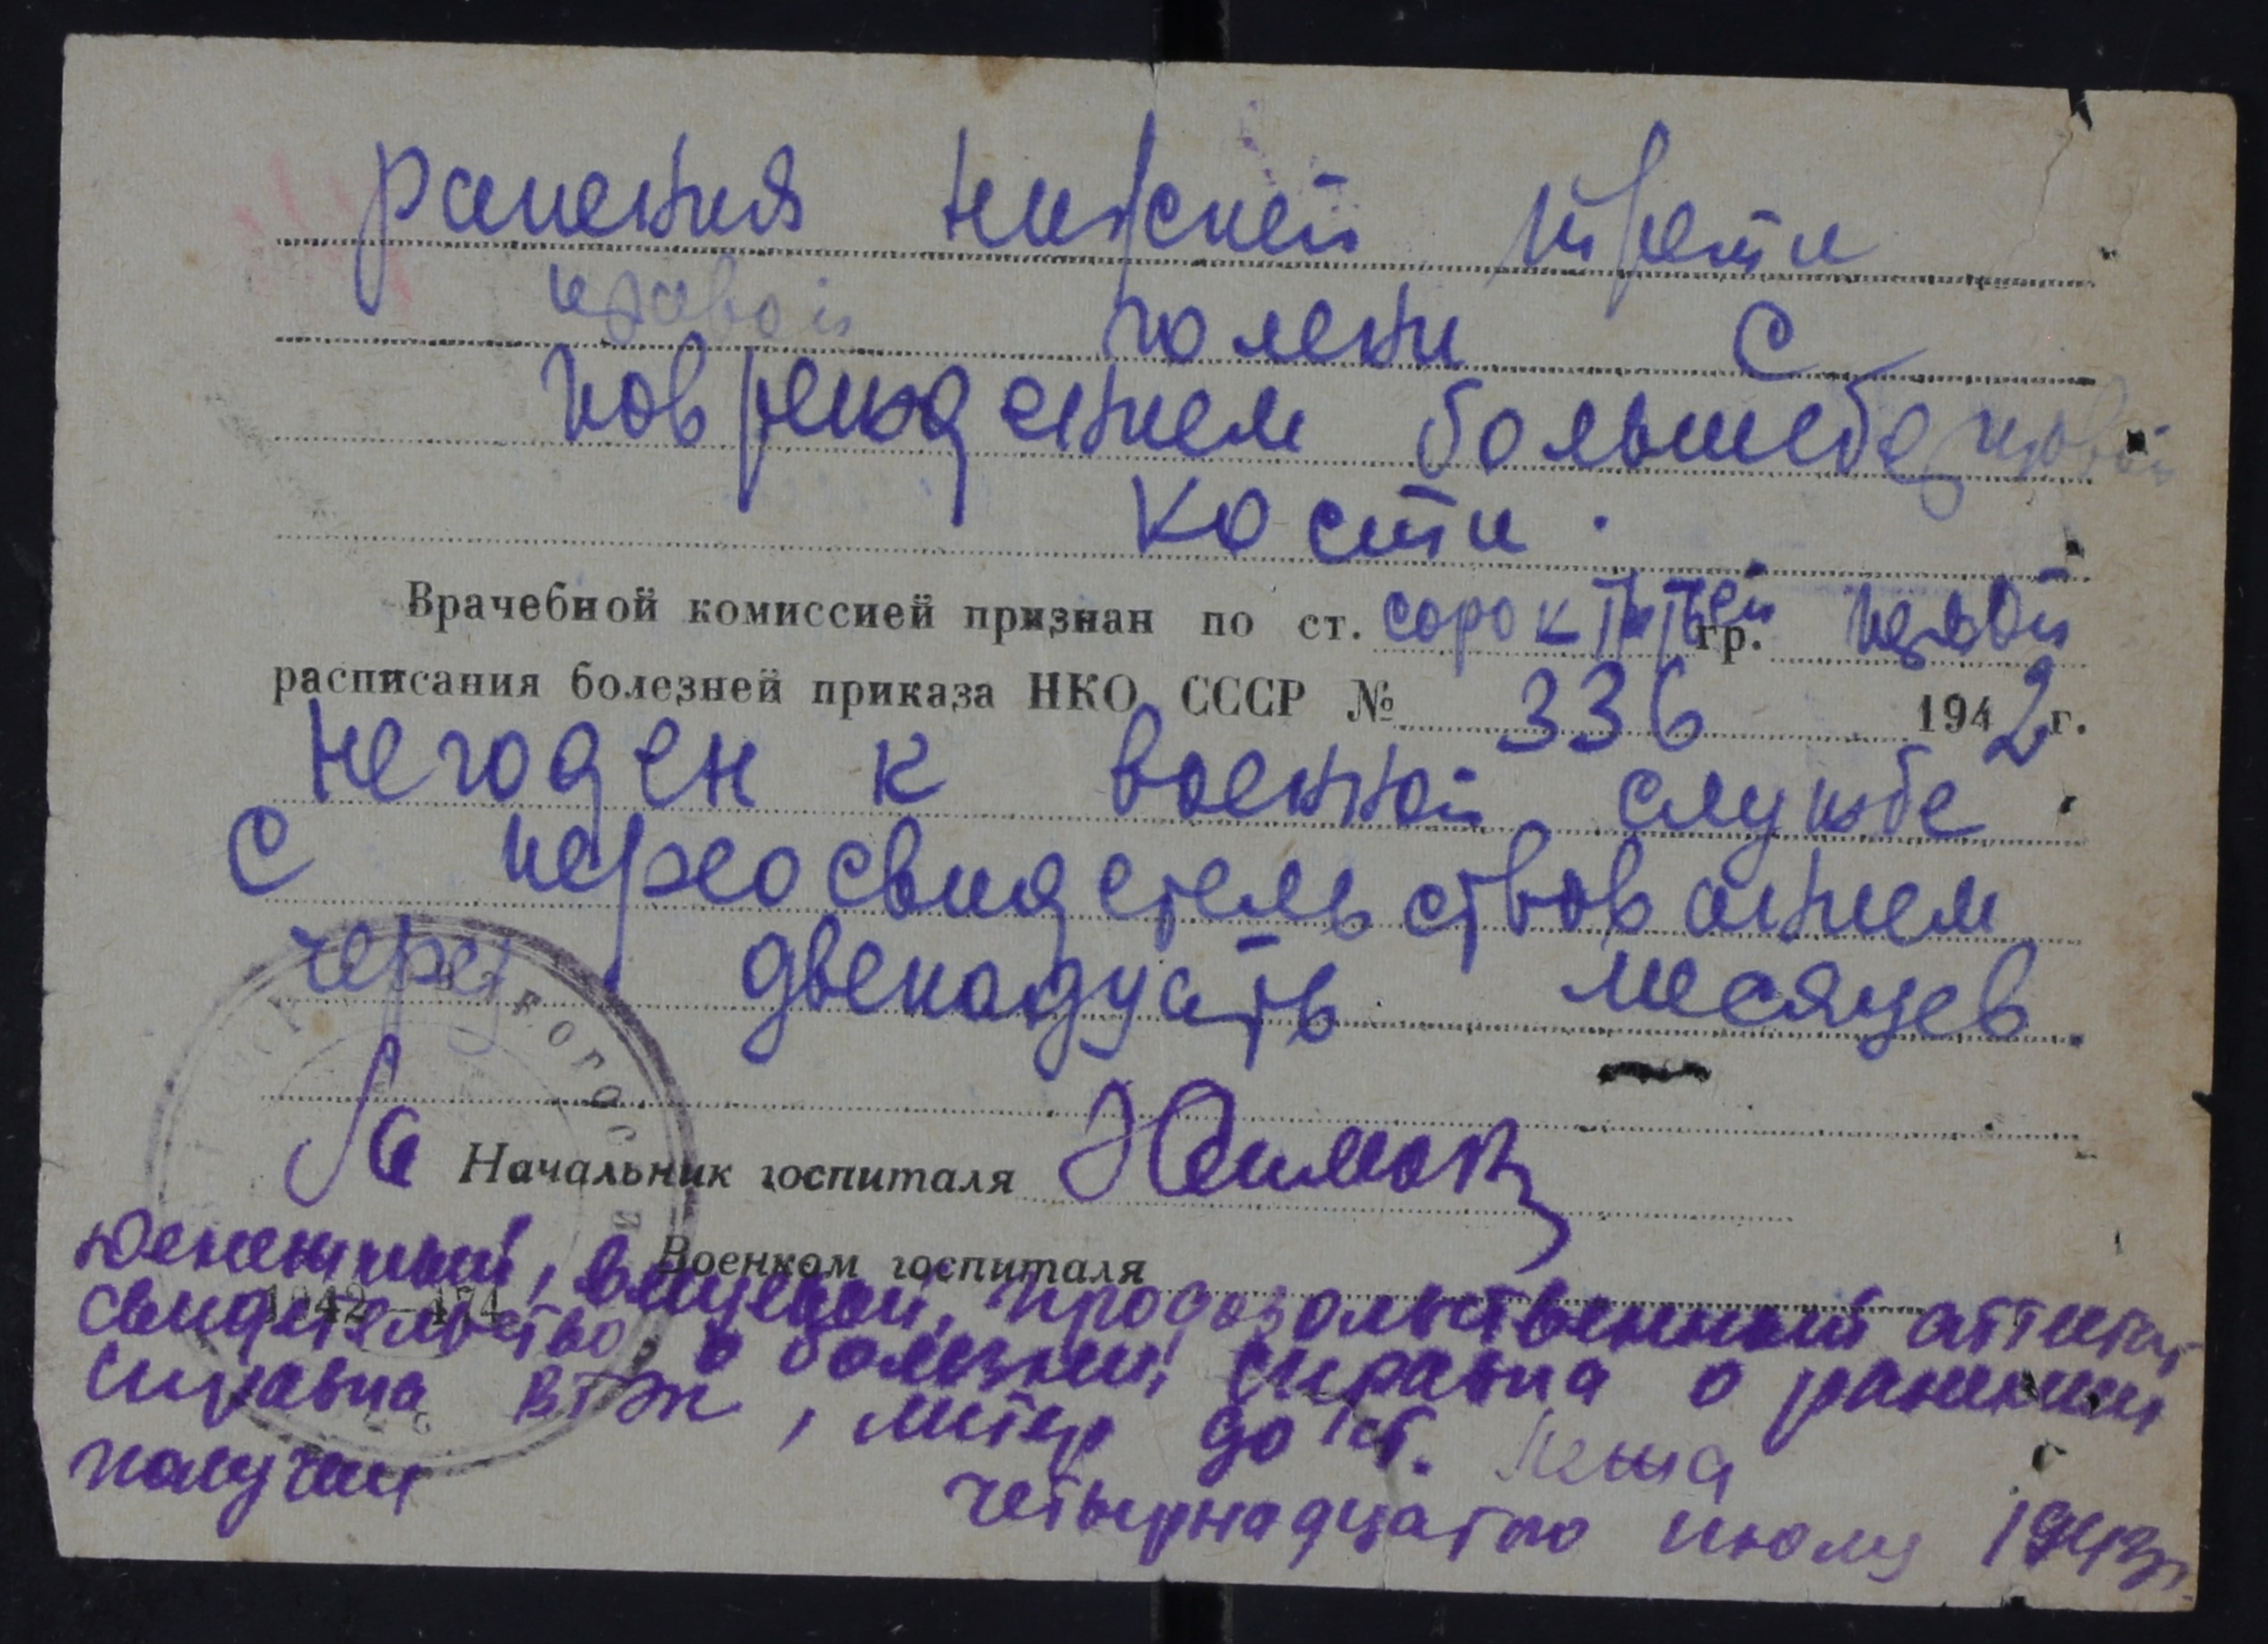 ранения нижней трети
правой голени с
повреждением большеберцовой
кости.
Врачебной комиссией признан по ст. сорок третьей гр. первой
расписания болезней приказа НКО СССР № 336 1942 г.
негоден к военной службе
с переосвидетельствованием
через двенадцать месяцев
Начальник госпиталя
Военком госпиталя
денежный, вещевой, продовольственный аттестат,
1942—174
свидетельство о болезни, справка о ранении
справка ВТЭК, литер до ст.
получил
четырнадцатого июля 1943 г.